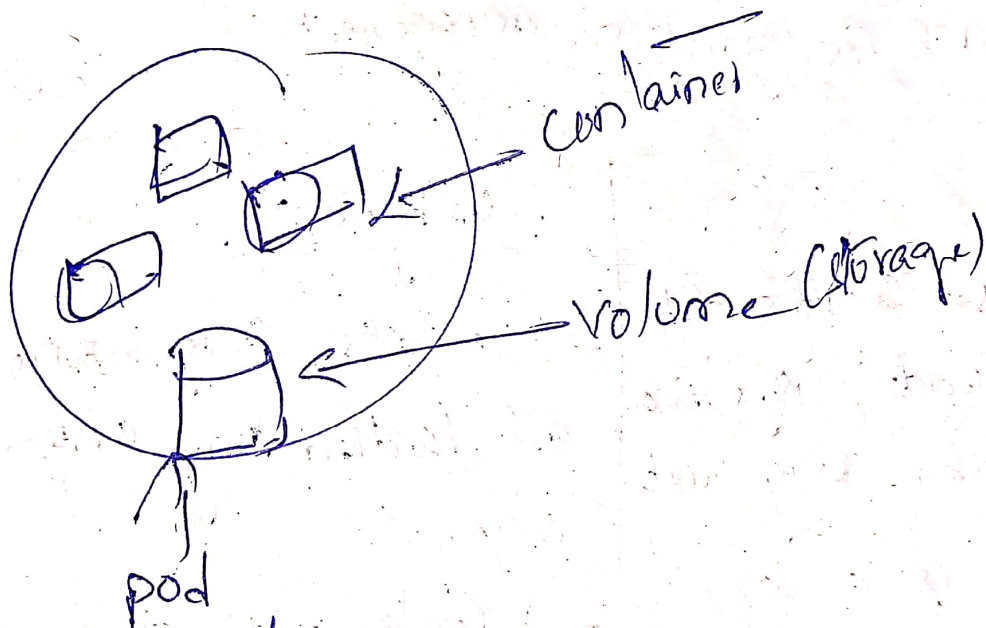 container
volume (storage)
pod